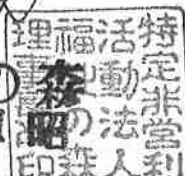 特定非営利
活動法人
福祉の森
理事長印
森昭
の